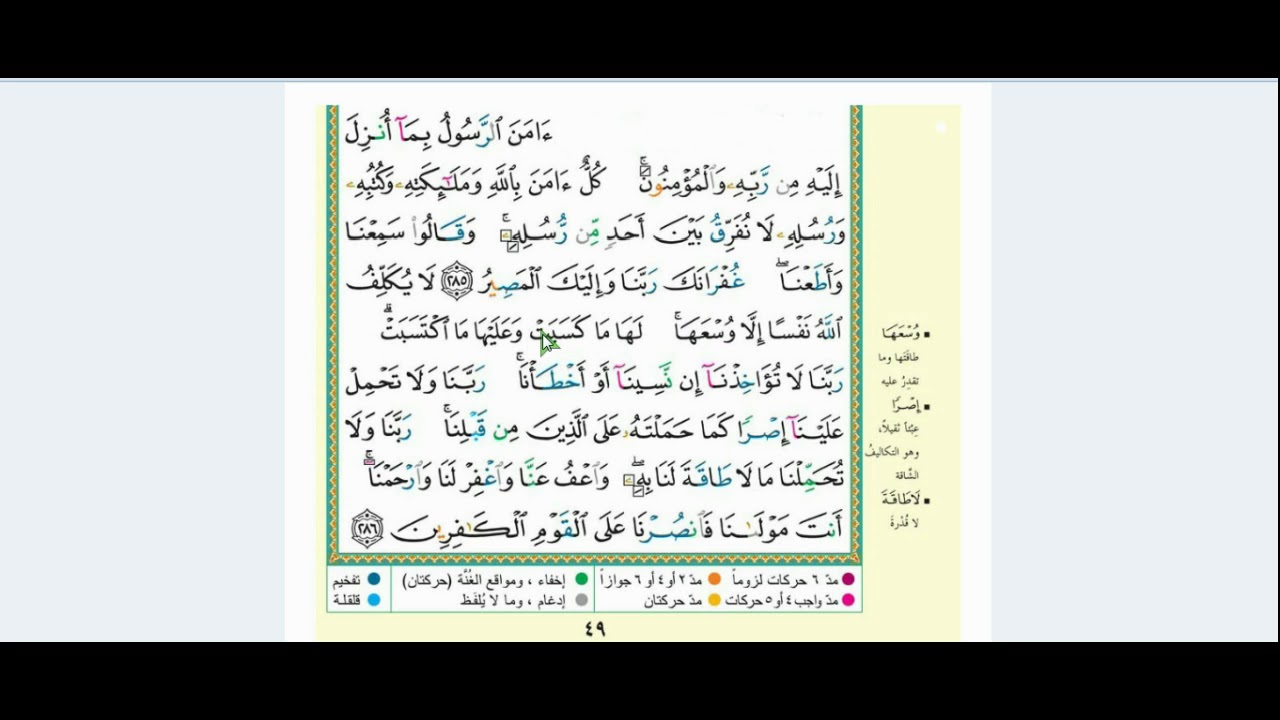 ءَامَنَ ٱلرَّسُولُ بِمَآ أُنزِلَ
إِلَيْهِ مِن رَّبِّهِۦ وَٱلْمُؤْمِنُونَۚ كُلٌّ ءَامَنَ بِٱللَّهِ وَمَلَٰٓئِكَتِهِۦ وَكُتُبِهِۦ
وَرُسُلِهِۦ لَا نُفَرِّقُ بَيْنَ أَحَدٍ مِّن رُّسُلِهِۦۚ وَقَالُوا۟ سَمِعْنَا
وَأَطَعْنَاۖ غُفْرَانَكَ رَبَّنَا وَإِلَيْكَ ٱلْمَصِيرُ ٢٨٥ لَا يُكَلِّفُ
ٱللَّهُ نَفْسًا إِلَّا وُسْعَهَاۚ لَهَا مَا كَسَبَتْ وَعَلَيْهَا مَا ٱكْتَسَبَتْۗ
رَبَّنَا لَا تُؤَاخِذْنَآ إِن نَّسِينَآ أَوْ أَخْطَأْنَاۚ رَبَّنَا وَلَا تَحْمِلْ
عَلَيْنَآ إِصْرًا كَمَا حَمَلْتَهُۥ عَلَى ٱلَّذِينَ مِن قَبْلِنَاۚ رَبَّنَا وَلَا
تُحَمِّلْنَا مَا لَا طَاقَةَ لَنَا بِهِۦۖ وَٱعْفُ عَنَّا وَٱغْفِرْ لَنَا وَٱرْحَمْنَاۚ
أَنتَ مَوْلَىٰنَا فَٱنصُرْنَا عَلَى ٱلْقَوْمِ ٱلْكَٰفِرِينَ ٢٨٦
وُسْعَهَا
طاقَتَها وما
تقدِرُ عليه
إِصْرًا
عِبْئاً ثقيلاً،
وهو التكاليفُ
الشّاقة
لَا طَاقَةَ
لا قُدْرةَ
مدّ ٦ حركات لزوماً مدّ ٢ أو ٤ أو ٦ جوازاً إخفاء ، ومواقع الغُنَّة (حركتان) تفخيم
مدّ واجب ٤ أو ٥ حركات مدّ حركتان إدغام ، وما لا يُلفَظ قلقلة
٤٩